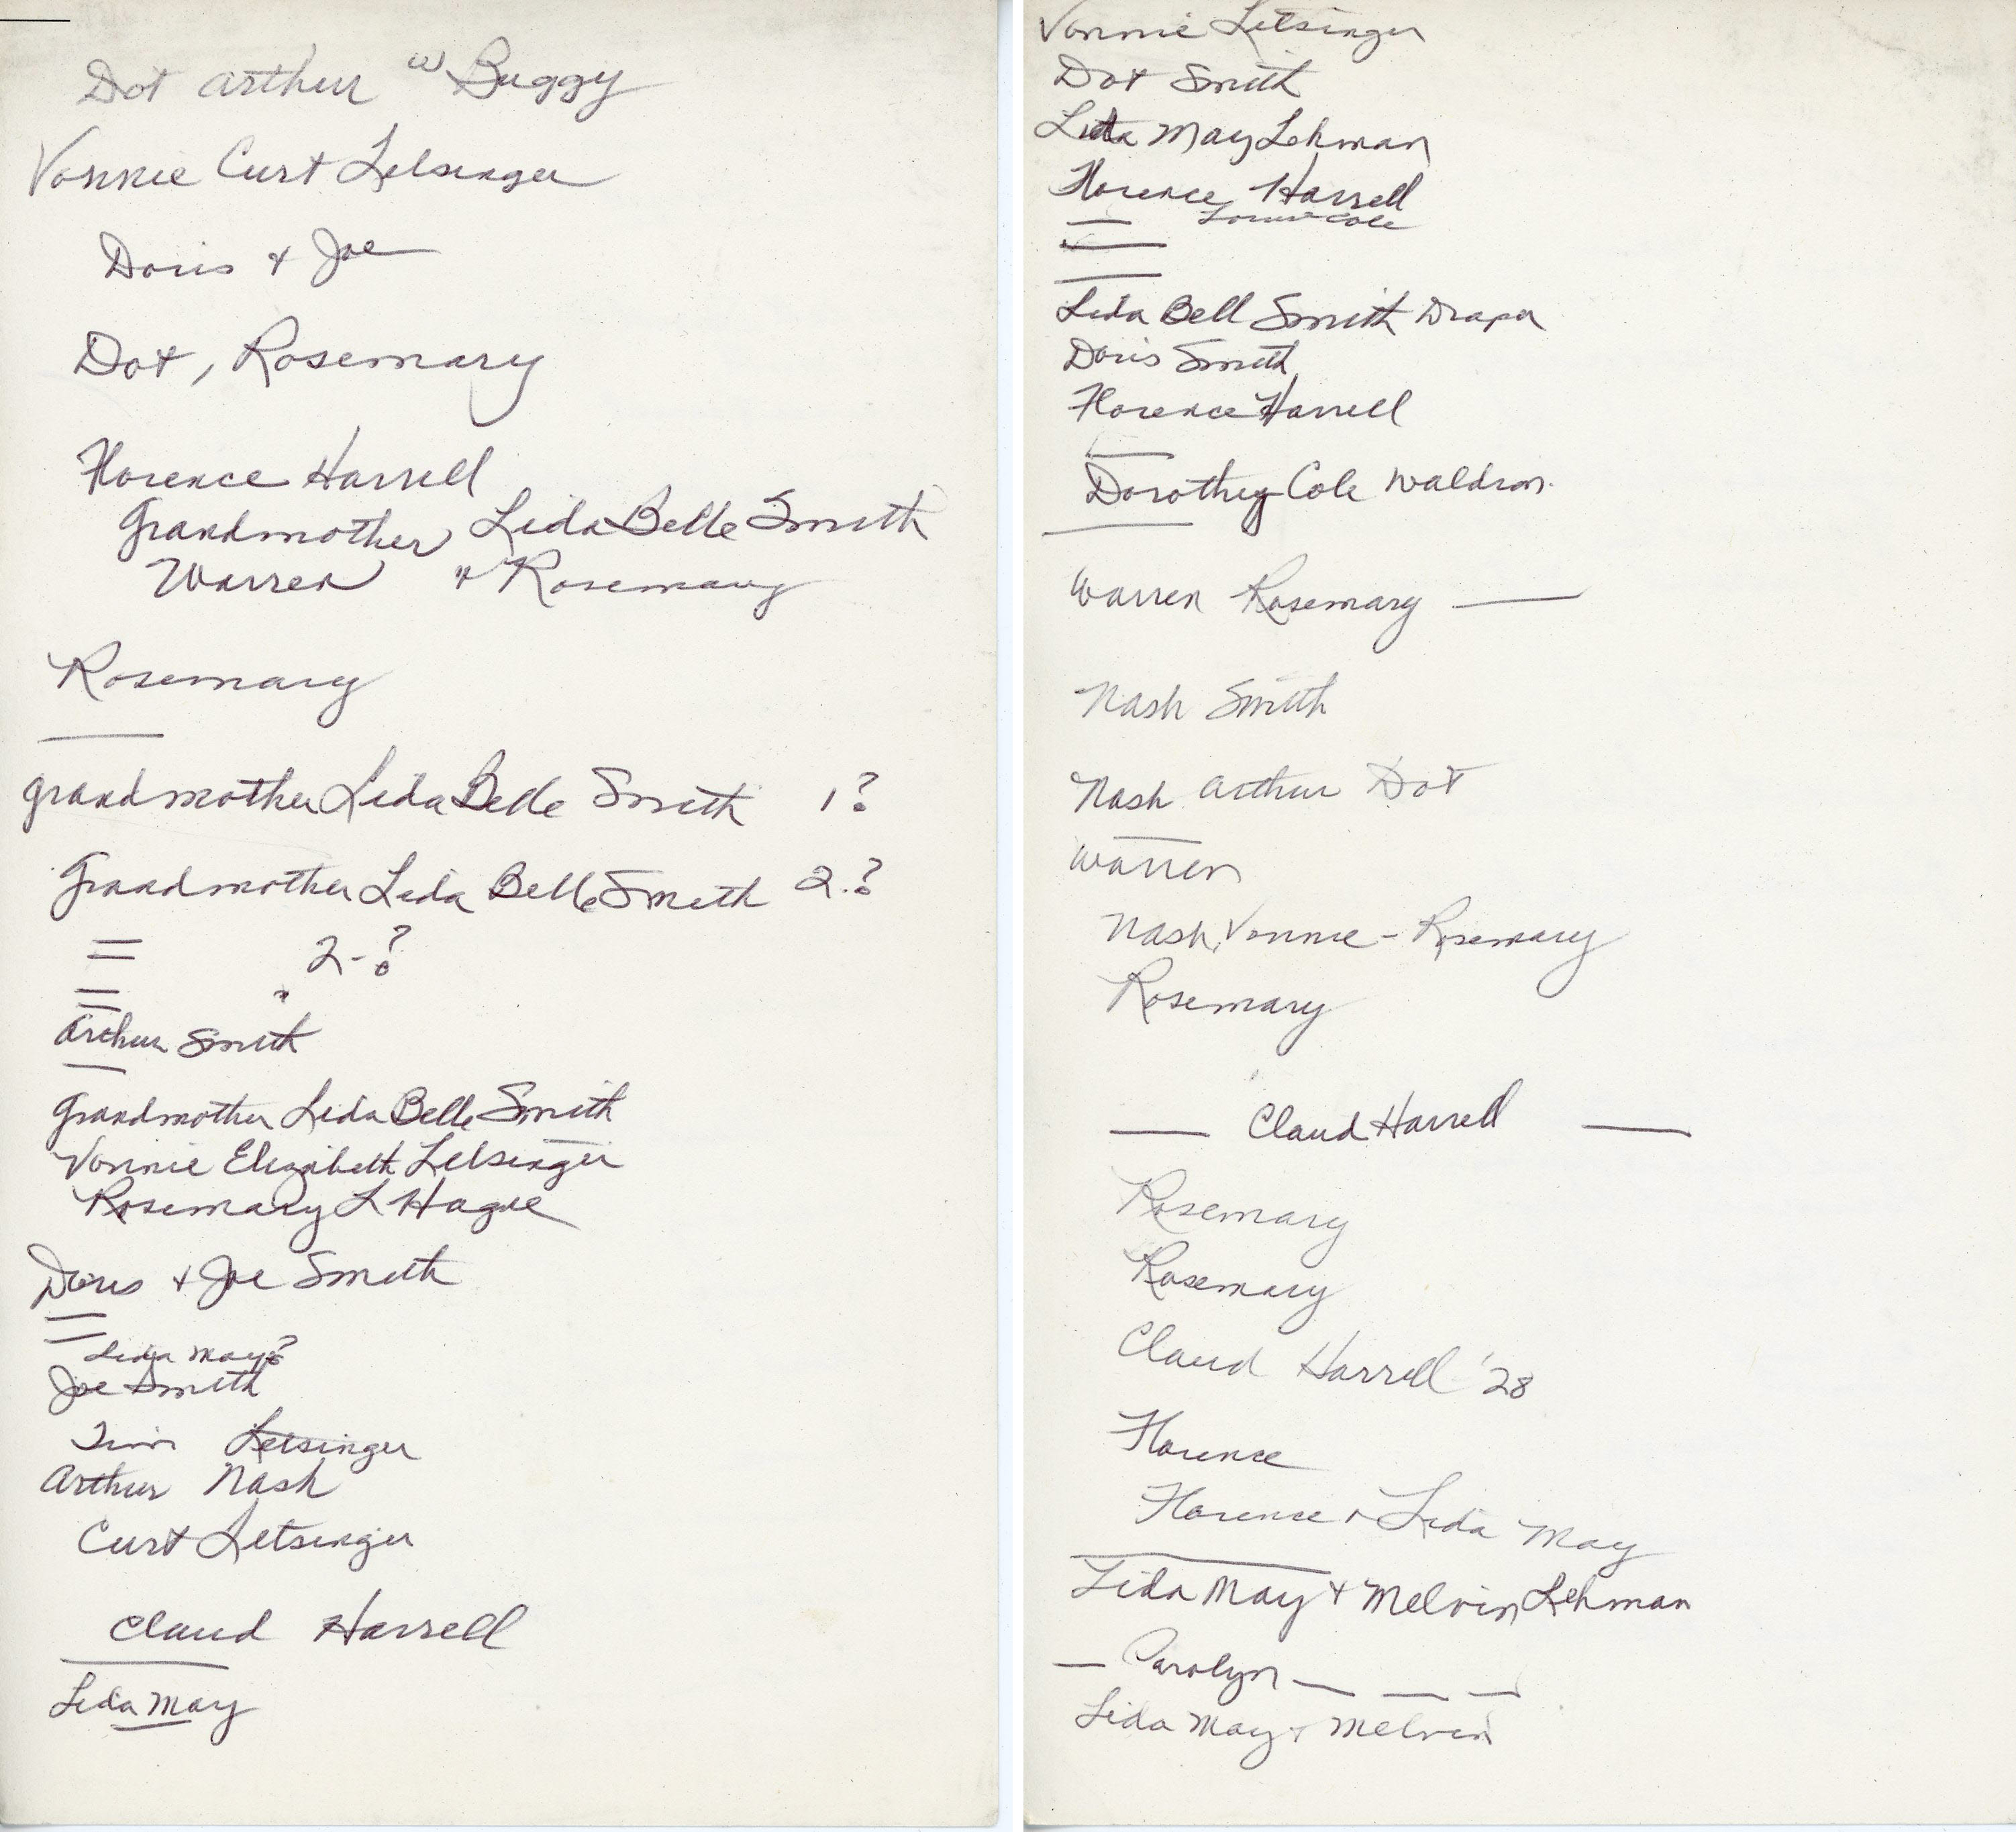 Dot Arthur w Buggy
Vonnie Curt Letsinger
Doris + Joe
Dot, Rosemary
Florence Harrell
Grandmother Lida Belle Smith
Warren + Rosemary
Rosemary
grandmother Lida Belle Smith 1?
Grandmother Lida Belle Smith 2.?
2-?
Arthur Smith
Grandmother Lida Belle Smith
Vonnie Elizabeth Letsinger
Rosemary L Hague
Doris + Joe Smith
Lida May?
Joe Smith
Letsinger
Arthur Nash
Curt Letsinger
Claud Harrell
Lida May
Vonnie Letsinger
Dot Smith
Lida May Lehman
Florence Harrell
Cole
Lida Bell Smith Draper
Doris Smith
Florence Harrell
Dorothy Cole Waldron.
Warren Rosemary —
Nash Smith
Nash Arthur Dot
Warren
Nash, Vonnie - Rosemary
Rosemary
— Claud Harrell —
Rosemary
Rosemary
Claud Harrell '28
Florence
Florence + Lida May
Lida May + Melvin Lehman
— Carolyn — — —
Lida May + Melvin